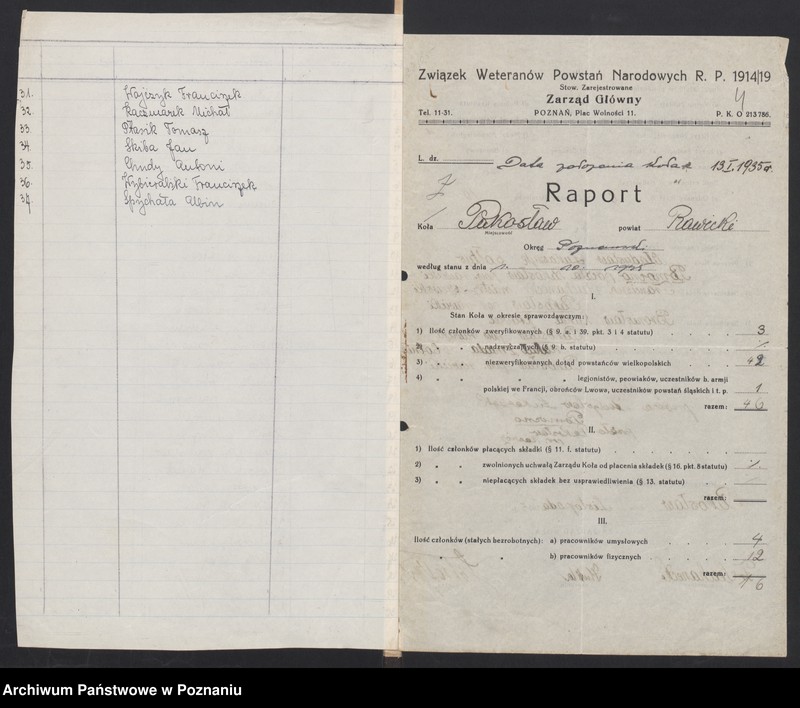 31. Wojczyk Franciszek
32. Kaczmarek Michał
33. Ptasik Tomasz
34. Skiba Jan
35. Chudy Antoni
36. Wybieralski Franciszek
37. Spychała Albin
Związek Weteranów Powstań Narodowych R. P. 1914/19
Stow. Zarejestrowane
Zarząd Główny
4
Tel. 11-31. POZNAŃ, Plac Wolności 11. P. K. O 213786.
L. dz. Data założenia Koła 13 I. 1935 r.
Raport
Koła Pakosław powiat Rawicki
Miejscowość
Okręg Poznański
według stanu z dnia 1. 10. 1935
I.
Stan Koła w okresie sprawozdawczym:
1) Ilość członków zweryfikowanych (§ 9. a. i 39. pkt. 3 i 4 statutu) 3
2) " " nadzwyczajnych (§ 9 b. statutu)
3) " " niezweryfikowanych dotąd powstańców wielkopolskich 42
4) " " " " legjonistów, peowiaków, uczestników b. armji
polskiej we Francji, obrońców Lwowa, uczestników powstań śląskich i t. p. 1
razem: 46
II.
1) Ilość członków płacących składki (§ 11. f. statutu)
2) " " zwolnionych uchwałą Zarządu Koła od płacenia składek (§ 16. pkt. 8 statutu)
3) " " niepłacących składek bez usprawiedliwienia (§ 13. statutu)
razem:
III.
Ilość członków (stałych bezrobotnych): a) pracowników umysłowych 4
" " b) pracowników fizycznych 12
razem: 16
Archiwum Państwowe w Poznaniu